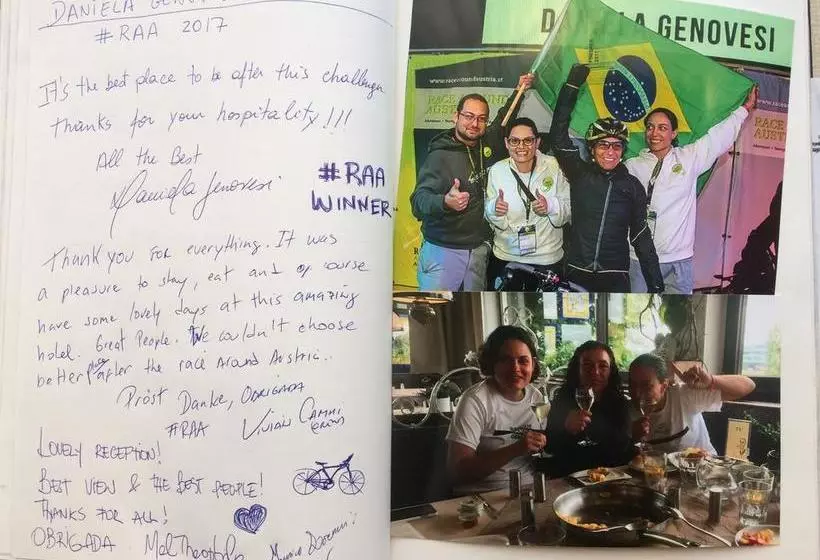 DANIELA GENOVESI
#RAA 2017
It's the best place to be after this challenge
thanks for your hospitality!!!
All the Best
Daniela Genovesi
#RAA
WINNER
Thank you for everything. It was
a pleasure to stay, eat and of course
have some lovely days at this amazing
hotel. Great People. We couldn't choose
better place after the race Around Austria.
Prost Danke, OBRIGADA
#RAA Vivian
LOVELY RECEPTION!
BEST VIEW & THE BEST PEOPLE!
THANKS FOR ALL!
OBRIGADA
GENOVESI
RACE
AUST